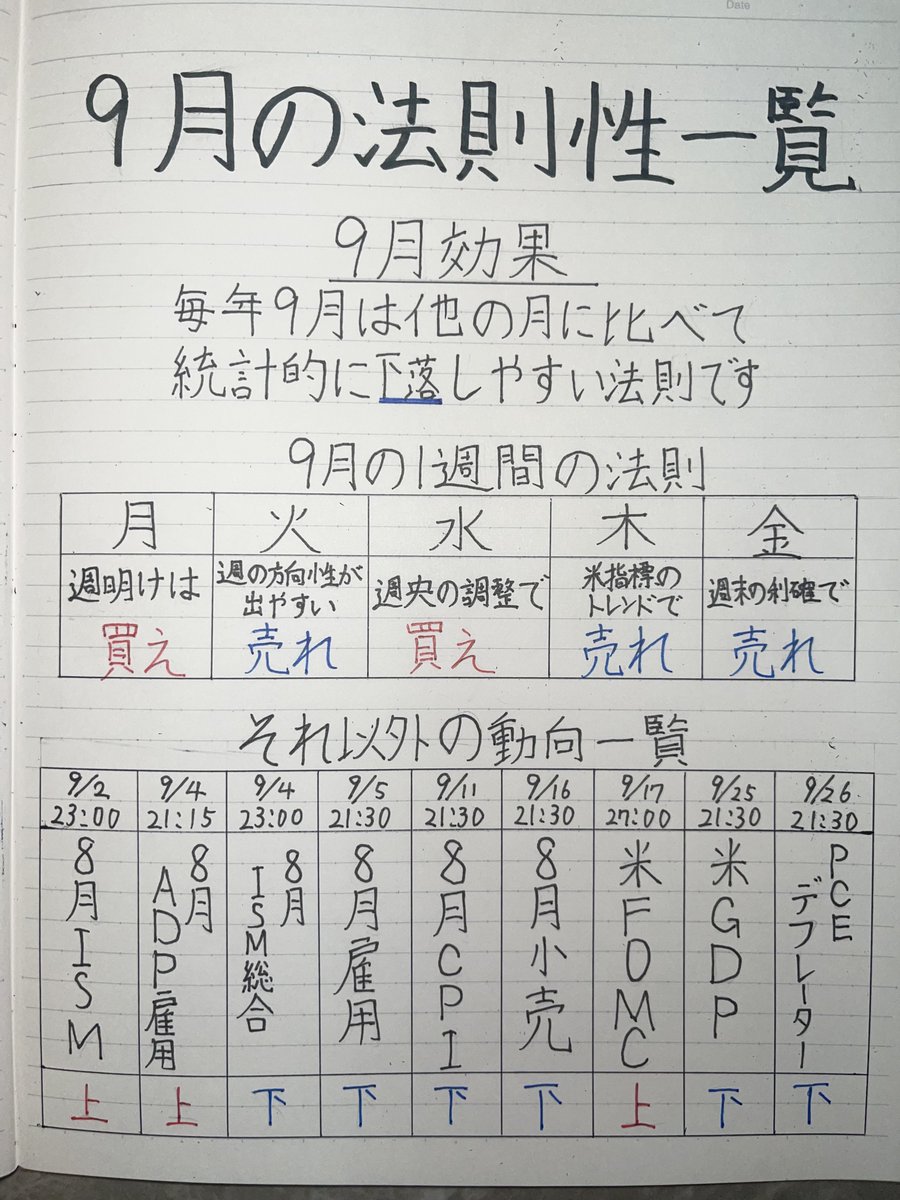 Date
9月の法則性一覧
9月効果
毎年9月は他の月に比べて
統計的に下落しやすい法則です
9月の1週間の法則
月 火 水 木 金
週明けは
買え
週の方向性が
出やすい
売れ
週央の調整で
買え
米指標の
トレンドで
売れ
週末の利確で
売れ
それ以外の動向一覧
9/2 9/4 9/4 9/5 9/11 9/16 9/17 9/25 9/26
23:00 21:15 23:00 21:30 21:30 21:30 27:00 21:30 21:30
8月ISM
8月
ADP雇用
8月
ISM総合
8月雇用
8月CPI
8月小売
米FOMC
米GDP
PCE
デフレーター
上 上 下 下 下 下 上 下 下